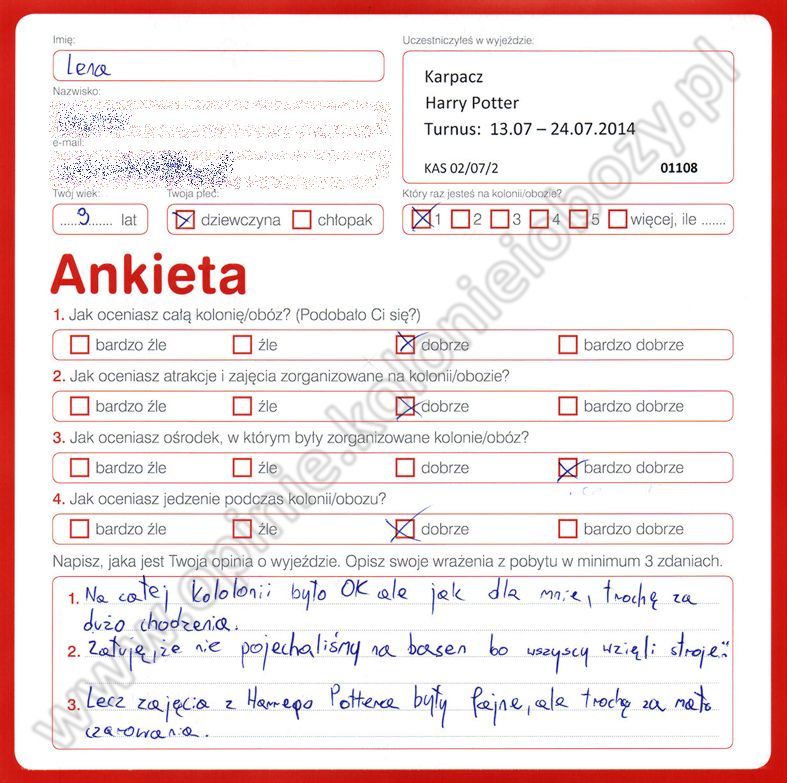 Imię:
Lena
Uczestniczyłeś w wyjeździe:
Karpacz
Harry Potter
Turnus: 13.07 – 24.07.2014
KAS 02/07/2 01108
Nazwisko:
e-mail:
Twój wiek: Twoja płeć:
9 lat dziewczyna chłopak
Który raz jesteś na kolonii/obozie?
1 2 3 4 5 więcej, ile .......
Ankieta
1. Jak oceniasz całą kolonię/obóz? (Podobało Ci się?)
bardzo źle źle dobrze bardzo dobrze
2. Jak oceniasz atrakcje i zajęcia zorganizowane na kolonii/obozie?
bardzo źle źle dobrze bardzo dobrze
3. Jak oceniasz ośrodek, w którym były zorganizowane kolonie/obóz?
bardzo źle źle dobrze bardzo dobrze
4. Jak oceniasz jedzenie podczas kolonii/obozu?
bardzo źle źle dobrze bardzo dobrze
Napisz, jaka jest Twoja opinia o wyjeździe. Opisz swoje wrażenia z pobytu w minimum 3 zdaniach.
1. Na całej kololonii było OK ale jak dla mnie, trochę za
dużo chodzenia.
2. Żałuję, że nie pojechaliśmy na basen bo wszyscy wzięli stroje.
3. Lecz zajęcia z Harrego Pottera były fajne, ale trochę za mało
czarowania.
www.opinie.kolonieiobozy.pl